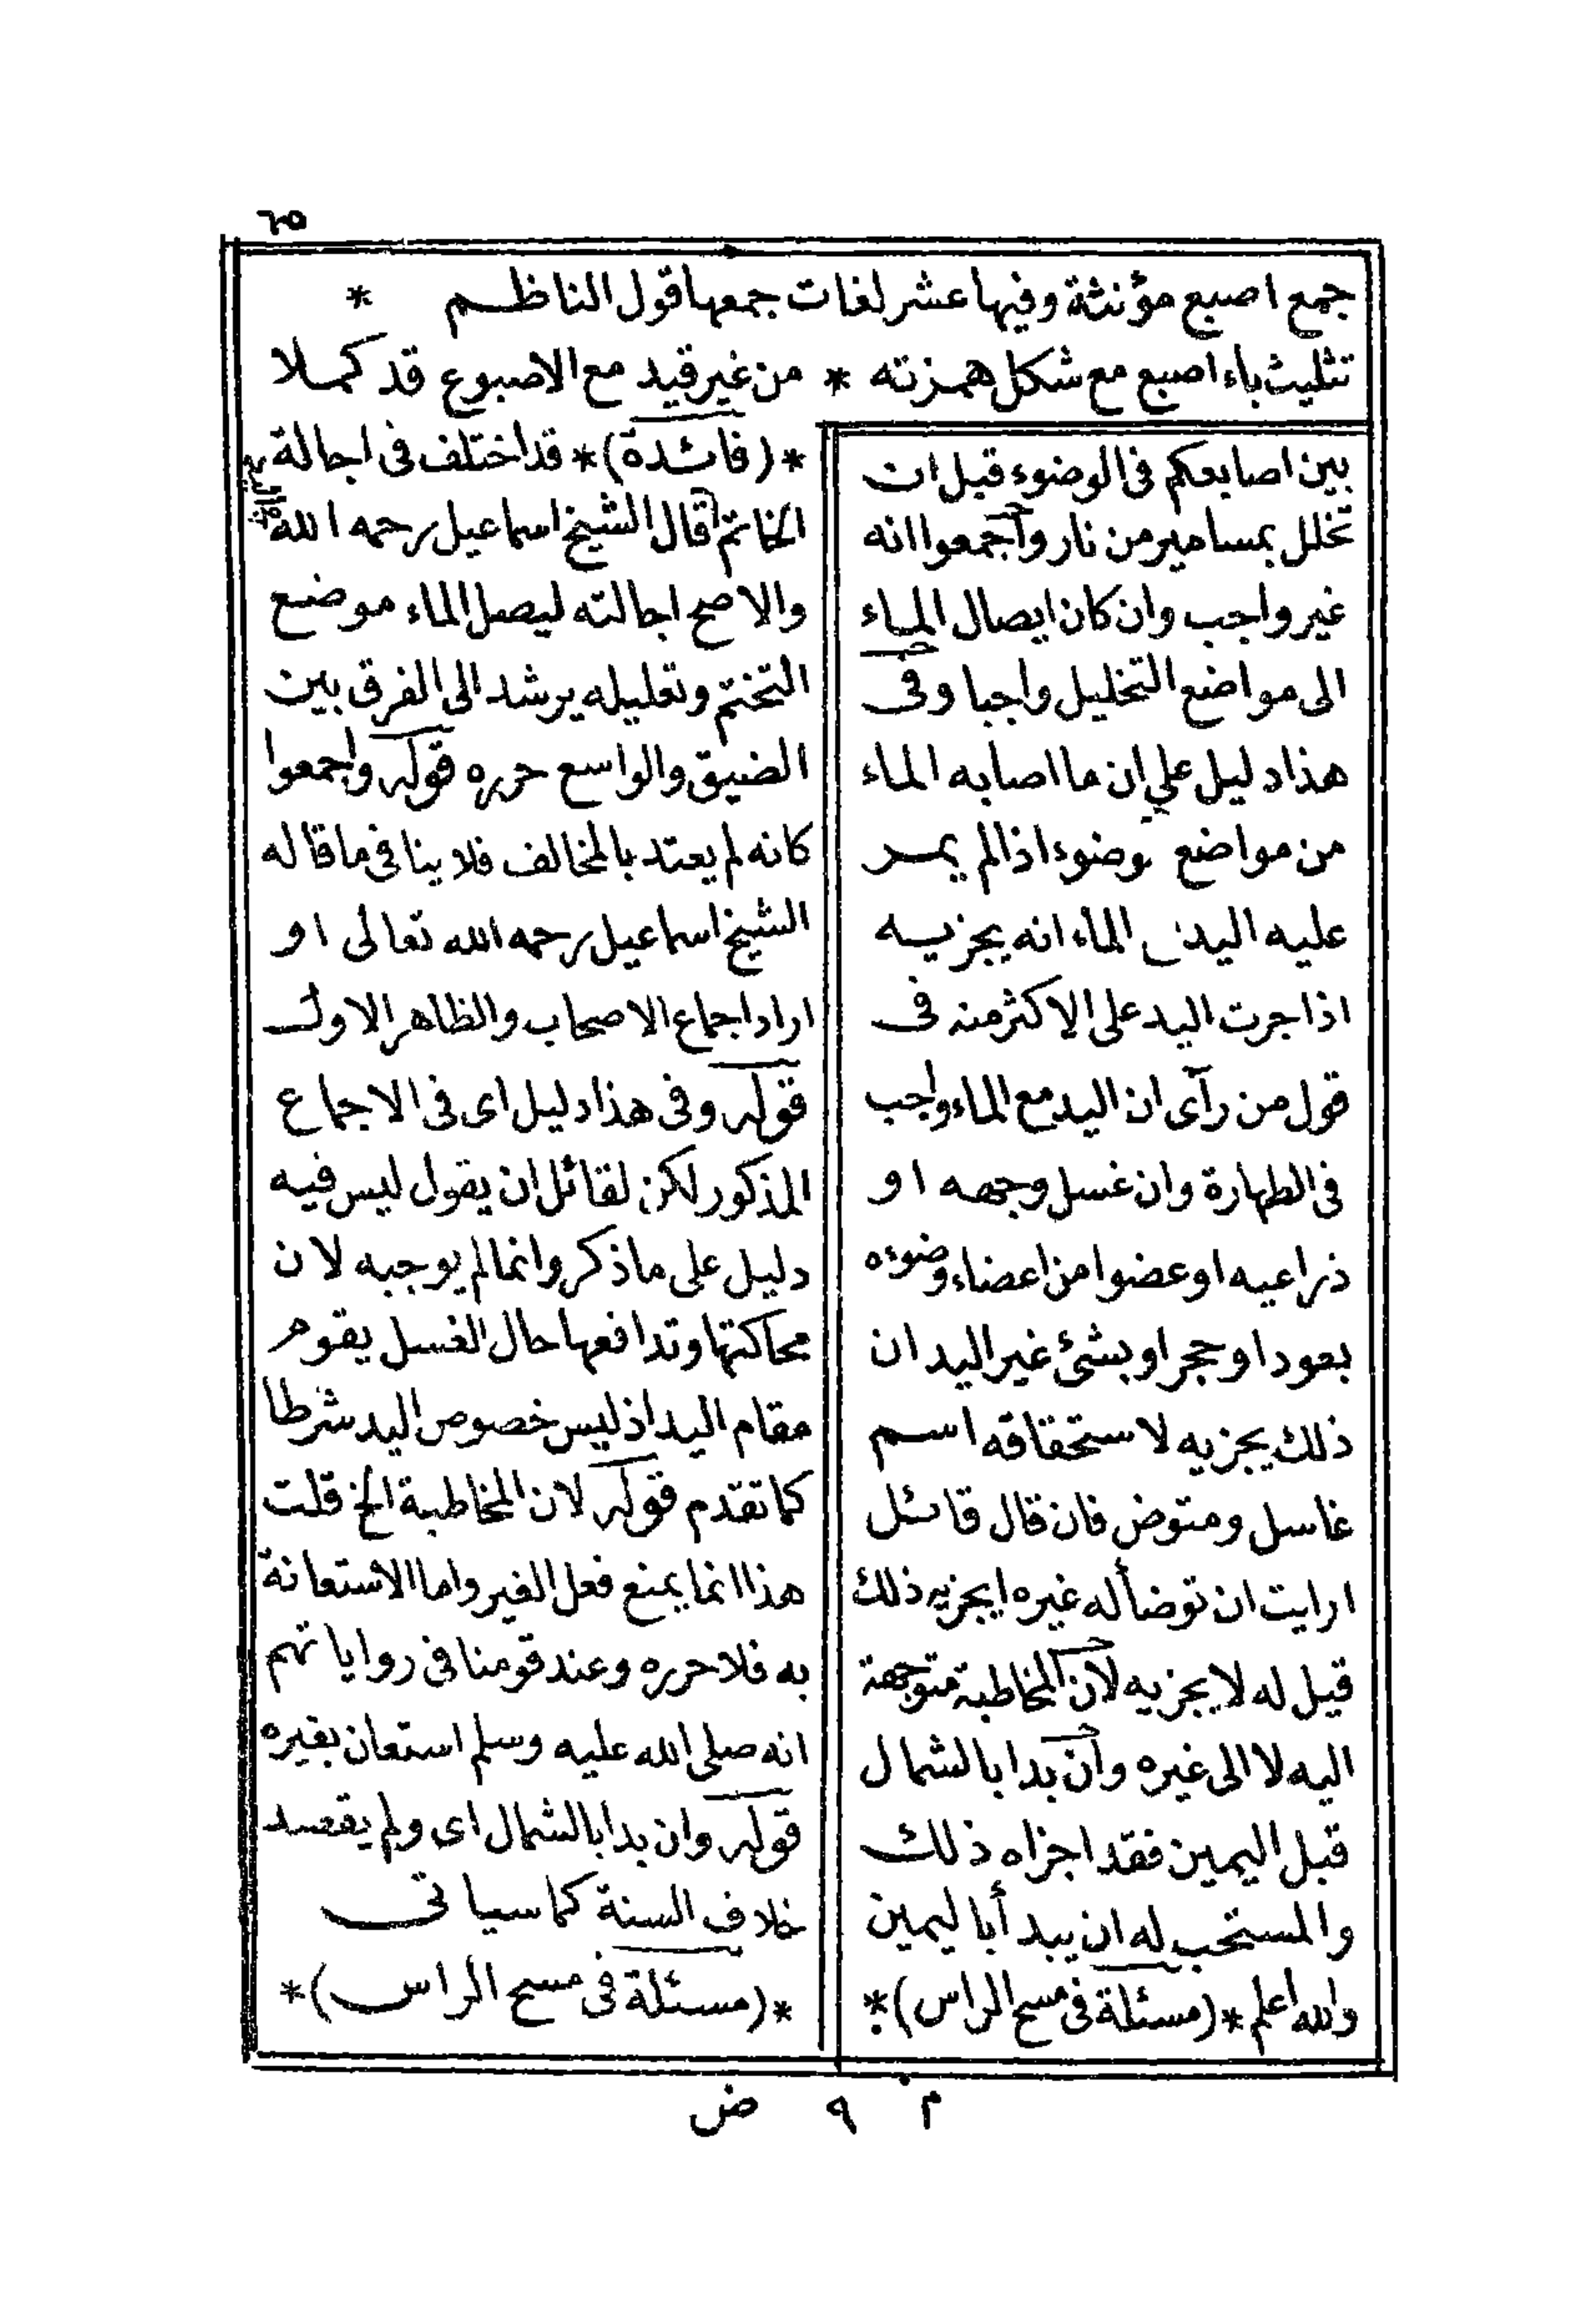 ٦٥
جمع اصبع مؤنثة وفيها عشر لغات جمعها قول الناظم *
تثليث باء اصبع مع شكل همزته * من غير قيد مع الاصبوع قد كملا
بين اصابعكم فى الوضوء قبل ان
تخلل بمسامير من نار وأجمعوا انه
غير واجب وان كان ايصال الماء
الى مواضع التخليل واجبا وفى
هذا دليل على ان ما اصابه الماء
من مواضع وضوء اذا لم يمر
عليه اليد الماء انه يجزيه
اذا جرت اليد على الاكثر منه فى
قول من رآى ان اليد مع الماء واجب
فى الطهارة وان غسل وجهه او
ذراعيه او عضوا من اعضاء وضوءه
بعود او حجر او بشئ غير اليد ان
ذلك يجزيه لاستحقاقه اسم
غاسل ومتوض فان قال قائل
ارايت ان توضأ له غيره ايجزيه ذلك
قيل له لا يجزيه لان المخاطبة متوجهة
اليه لا الى غيره وان بدا بالشمال
قبل اليمين فقد اجزاه ذلك
والمستحب له ان يبدأ باليمين
والله اعلم *(مسئلة فى مسح الراس)*
*(فائدة)* قد اختلف فى اجالة
الخاتم قال الشيخ اسماعيل رحمه الله
والاصح اجالته ليصل الماء موضع
التختم وتعليله يرشد الى الفرق بين
الضيق والواسع حرره قوله واجمعوا
كانه لم يعتد بالمخالف فلا ينافى ما قاله
الشيخ اسماعيل رحمه الله تعالى او
اراد اجماع الاصحاب والظاهر الاول
قوله وفى هذا دليل اى فى الاجماع
المذكور لكن لقائل ان يقول ليس فيه
دليل على ما ذكر وانما لم يوجبه لان
محاكتها وتدافعها حال الغسل يقوم
مقام اليد اذ ليس خصوص اليد شرطا
كما تقدم قوله لان المخاطبة الخ قلت
هذا انما يمنع فعل الغير واما الاستعانة
به فلا حرره وعند قومنا فى رواياتهم
انه صلى الله عليه وسلم استعان بغيره
قوله وان بدا بالشمال اى ولم يقصد
خلاف السنة كما سياتى
*(مسئلة فى مسح الراس)*
م ٩ ض